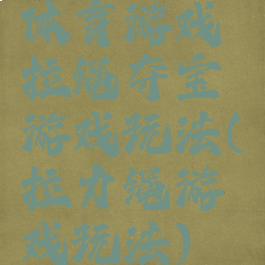 体育游戏
拉绳夺宝
游戏玩法(
拉力绳游
戏玩法)